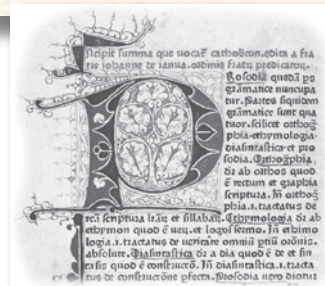 Incipit summa que vocat̄ catholicon. edita a fra
tre iohanne de ianua. ordinis fratrū predicatoꝝ.
Prosodia quedā ps
grāmatice nuncupa
tur. Partes siquidem
grāmatice sunt qua
tuor. scilicet orthog̃
phia ethymologia
diasintastica et pro
sodia. Orthog̃phia
dr̄ ab orthos quod
ē rectum et graphia
scriptura. In orthog̃
phia .i. tractatus de
recā scriptura lrāꝝ et sillabaꝝ. Ethymologia dr̄ ab
ethymon quod ē veꝝ. et logos sermo. In ethimo
logia .i. tractatus de veritate omniū ptiū oronis.
absolute. Diasintastica dr̄ a dia quod ē de et sin
taxis quod ē constructio. In diasintastica .i. tracta
tus de constructione pfecta. Prosodia vero dicitur